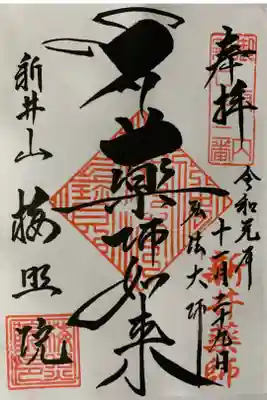 奉拝
令和元年
十一月二十九日
弘法大師
薬師如来
新井薬師
新井山
梅照院